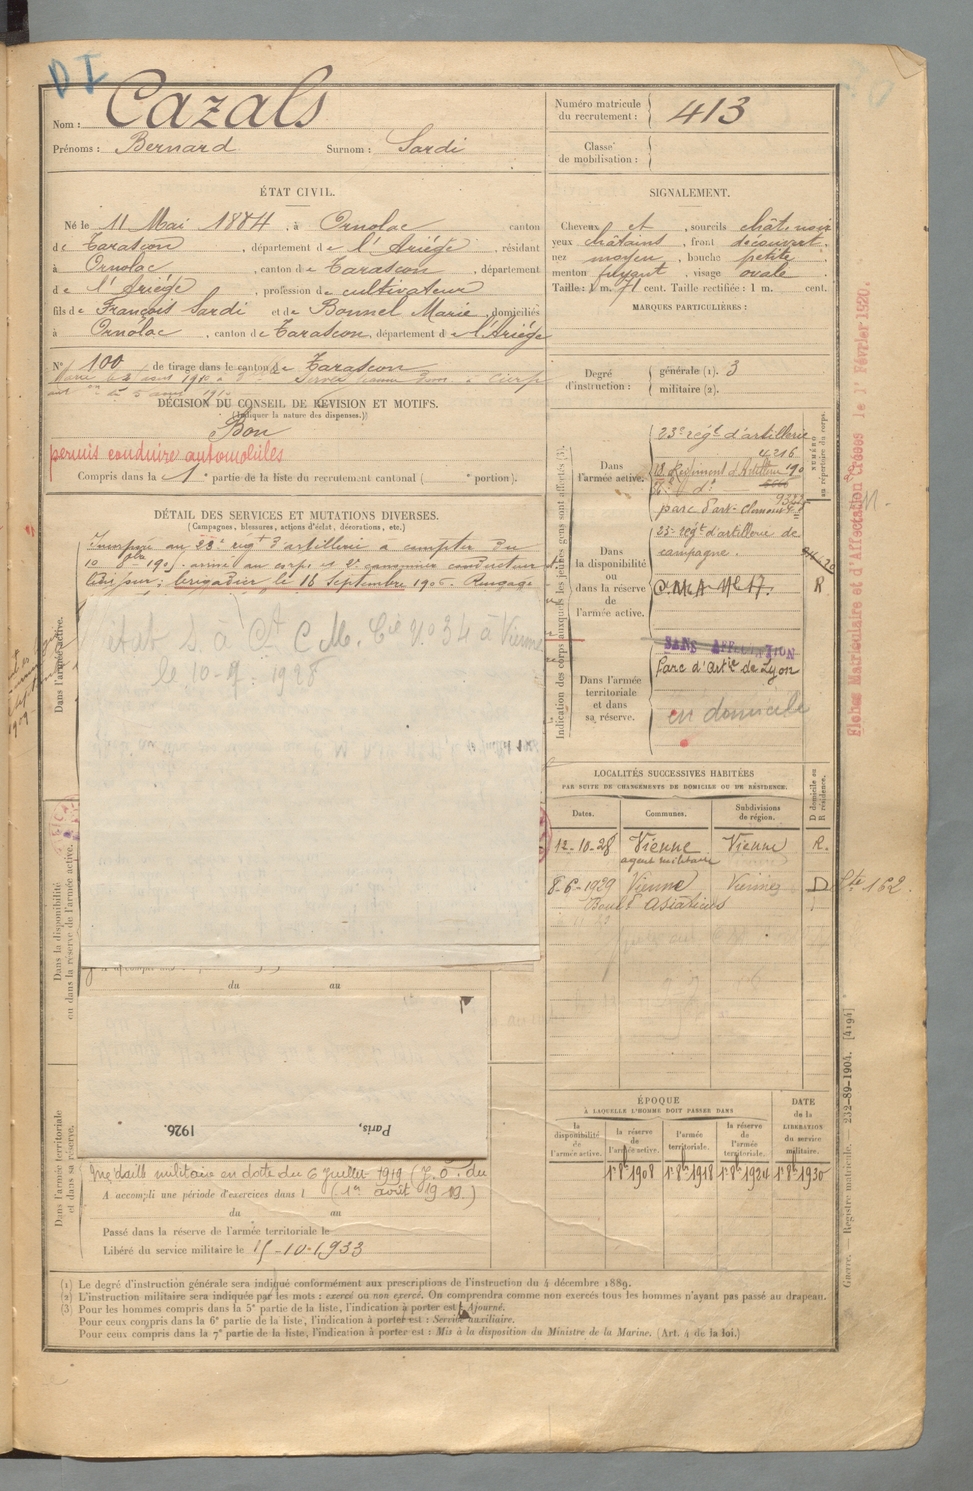 DI
Nom : Cazals
Prénoms : Bernard Surnom : Sardi
Numéro matricule du recrutement : 413
Classe de mobilisation :
ÉTAT CIVIL.
Né le 11 Mai 1884, à Ornolac canton
de Tarascon, département de l'Ariège, résidant
à Ornolac, canton de Tarascon, département
de l'Ariège, profession de cultivateur
fils de François Sardi et de Bonnel Marie, domiciliés
à Ornolac, canton de Tarascon, département de l'Ariège
N° 100 de tirage dans le canton de Tarascon
DÉCISION DU CONSEIL DE RÉVISION ET MOTIFS.
(Indiquer la nature des dispenses.)
Bon
permis conduire automobiles
Compris dans la 1e partie de la liste du recrutement cantonal ( e portion).
SIGNALEMENT.
Cheveux et, sourcils chât. noir
yeux châtains, front découvert.
nez moyen, bouche petite
menton fuyant, visage ovale.
Taille : 1 m. 71 cent. Taille rectifiée : 1 m. cent.
MARQUES PARTICULIÈRES :
Degré d'instruction : générale (1). 3
militaire (2).
DÉTAIL DES SERVICES ET MUTATIONS DIVERSES.
(Campagnes, blessures, actions d'éclat, décorations, etc.)
Incorporé au 23e régt d'artillerie à compter du
10 8bre 1905. arrivé au corps et 2e canonnier conducteur
ledit jour; brigadier le 16 Septembre 1906. Rengagé
C M. Cie N° 34 à Vienne
le 10-9-1928
Dans l'armée active.
Dans la disponibilité ou dans la réserve de l'armée active.
Dans l'armée territoriale et dans sa réserve.
du au
Paris, 1926.
Médaille militaire en date du 6 Juillet 1919 (J.O. du
A accompli une période d'exercices dans l (1er août 1919.)
du au
Passé dans la réserve de l'armée territoriale le
Libéré du service militaire le 15-10-1933
Indication des corps auxquels les jeunes gens sont affectés (3).
NUMÉRO au répertoire du corps.
Dans l'armée active.
23e régt d'artillerie
4216
18 Régiment d'Artillerie
9322
parc d'art-
Dans la disponibilité ou dans la réserve de l'armée active.
23e régt d'artillerie de
campagne.
R
Dans l'armée territoriale et dans sa réserve.
SANS AFFECTATION
Parc d'Artie de Lyon
en domicile
LOCALITÉS SUCCESSIVES HABITÉES
PAR SUITE DE CHANGEMENTS DE DOMICILE OU DE RÉSIDENCE.
Dates. Communes. Subdivisions de région. D domicile ou R résidence.
12-10-28 Vienne Vienne R.
agent militaire
8-6-1929 Vienne Vienne D
Bould Asiaticus
ÉPOQUE
À LAQUELLE L'HOMME DOIT PASSER DANS
DATE de la LIBÉRATION du service militaire.
la disponibilité de l'armée active.
la réserve de l'armée active.
l'armée territoriale.
la réserve de l'armée territoriale.
1er 8bre 1908 1er 8bre 1918 1er 8bre 1924 1er 8bre 1930
(1) Le degré d'instruction générale sera indiqué conformément aux prescriptions de l'instruction du 4 décembre 1889.
(2) L'instruction militaire sera indiquée par les mots : exercé ou non exercé. On comprendra comme non exercés tous les hommes n'ayant pas passé au drapeau.
(3) Pour les hommes compris dans la 5e partie de la liste, l'indication à porter est : Ajourné.
Pour ceux compris dans la 6e partie de la liste, l'indication à porter est : Service auxiliaire.
Pour ceux compris dans la 7e partie de la liste, l'indication à porter est : Mis à la disposition du Ministre de la Marine. (Art. 4 de la loi.)
Fiches Matriculaire et d'Affectation Créées le 1er Février 1920.
Guerre. — Registre matricule. — 232-89-1904. [4194]